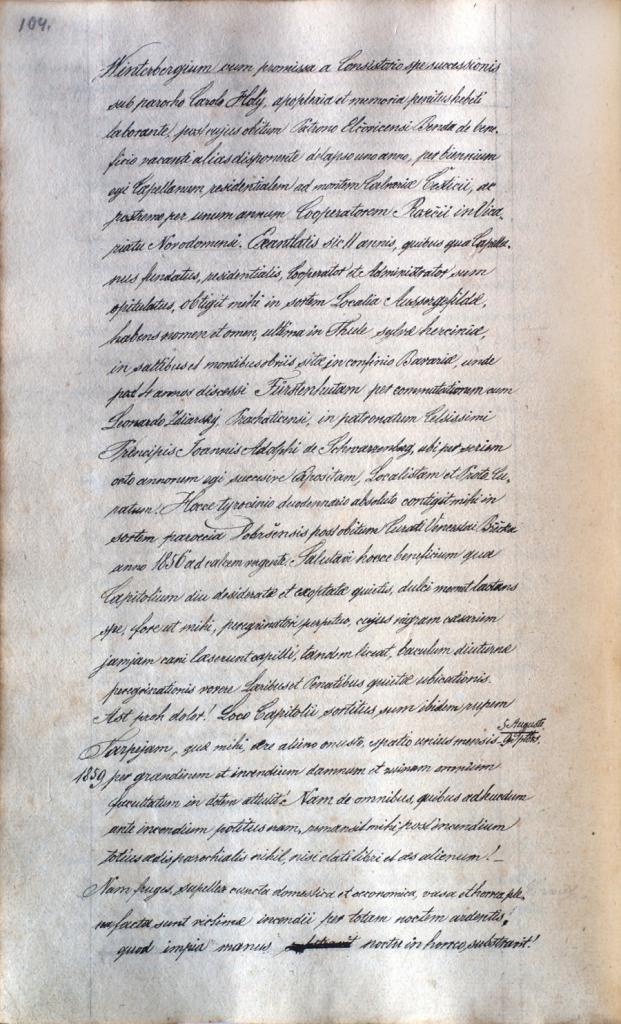 104.
Winterbergium cum promissa a Consistorio spe successionis
sub parocho Carolo Holý, apoplexia et memoria penitus hebeti
laborante, post cujus obitum Patrono Elčovicensi Benda de bene-
ficio vacanti alias disponente delapso uno anno, per biennium
egi Capellanum residentialem ad montem Calvariæ, ac
postremo per unum annum Cooperatorem in Vica-
riatu Novodomensi. Exantlatis sic 11 annis, quibus qua Capella-
nus fundatus, residentialis, Cooperator et Administrator sum
opitulatus, obtigit mihi in sortem Localia Aussergefildæ,
habens nomen et omen, ultima in Thule sylvæ herciniæ,
in saltibus et montibus obriis sita, in confinio Bavariæ, unde
post 4 annos discessi Fürstenhutam per commutationem cum
Leonardo Zdiarský, Prachaticensi, in patronatum Celsissimi
Principis Joannis Adolphi de Schwarzenberg, ubi per seriem
octo annorum egi succesive Expositum, Localistam et Proto Cu-
ratum. Hocce tyrocinio duodennario absoluto contigit mihi in
sortem paroecia Dobršensis post obitum Curati Venceslai
anno 1856 ad calcem vergente. Salutavi hocce beneficium qua
Capitolium diu desideratæ et exoptatæ quietis, dulci me
spe, fore ut mihi, peregrinatori perpetuo, cujus nigram cæsariem
jamjam cani læserunt capilli, tandem liceat, baculum diuturnæ
peregrinationis vovere Laribus et Penatibus quietæ ubicationis.
Ast proh dolor! Loco Capitolii sortitus sum ibidem rupem
Tarpejam, quæ mihi, ære alieno onusto, spatio unius mensis 5. Augusti
1859 per grandinem et incendium damnum et ruinam omnium
facultatum in dotem attulit! Nam de omnibus, quibus adhucdum
ante incendium potitus eram, remansit mihi post incendium
totius ædis parochialis nihil, nisi elati libri et æs alienum! –
Nam fruges, supellex cuncta domestica et oeconomica, vasa et horrea ple-
na facta sunt victima incendii per totam noctem ardentis,
quod impia manus noctu in horreo, substravit!